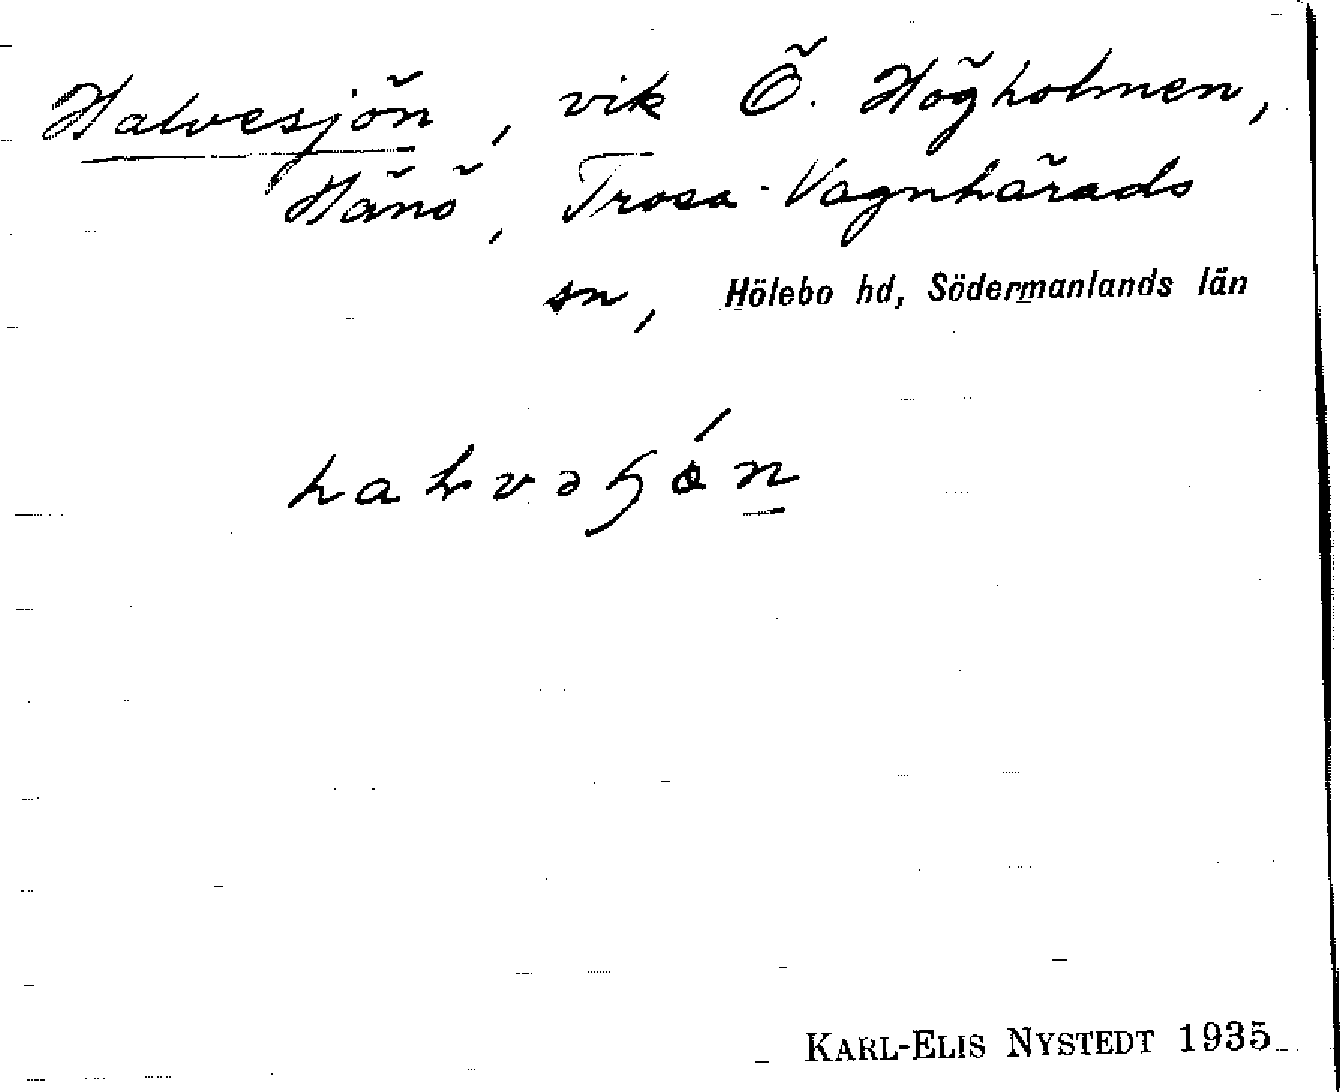 Halvesjön, vik Ö. Högholmen,
Hänö, Trosa-Vagnhärads
sn, Hölebo hd, Södermanlands län
KARL-ELIS NYSTEDT 1935